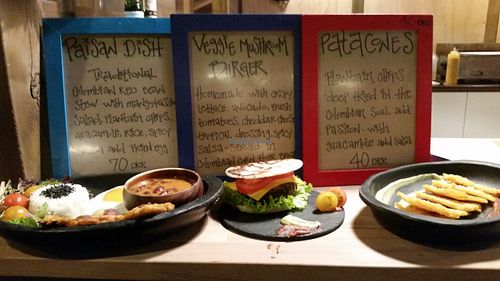 Paisan Dish
Traditional
Colombian red bean
stew with mango/salsa
salad, plantain chips,
guacamole, rice, spicy
and fried egg
70 DKK
Veggie Mushroom
Burger
Homemade with crispy
lettuce, avocado, fresh
tomatoes, cheddar cheese
tropical dressing, spicy
salsa-served in
Colombian
Patacones
Plantain chips
deep fried in the
Colombian soul and
passion-with
guacamole and salsa
40 DKK